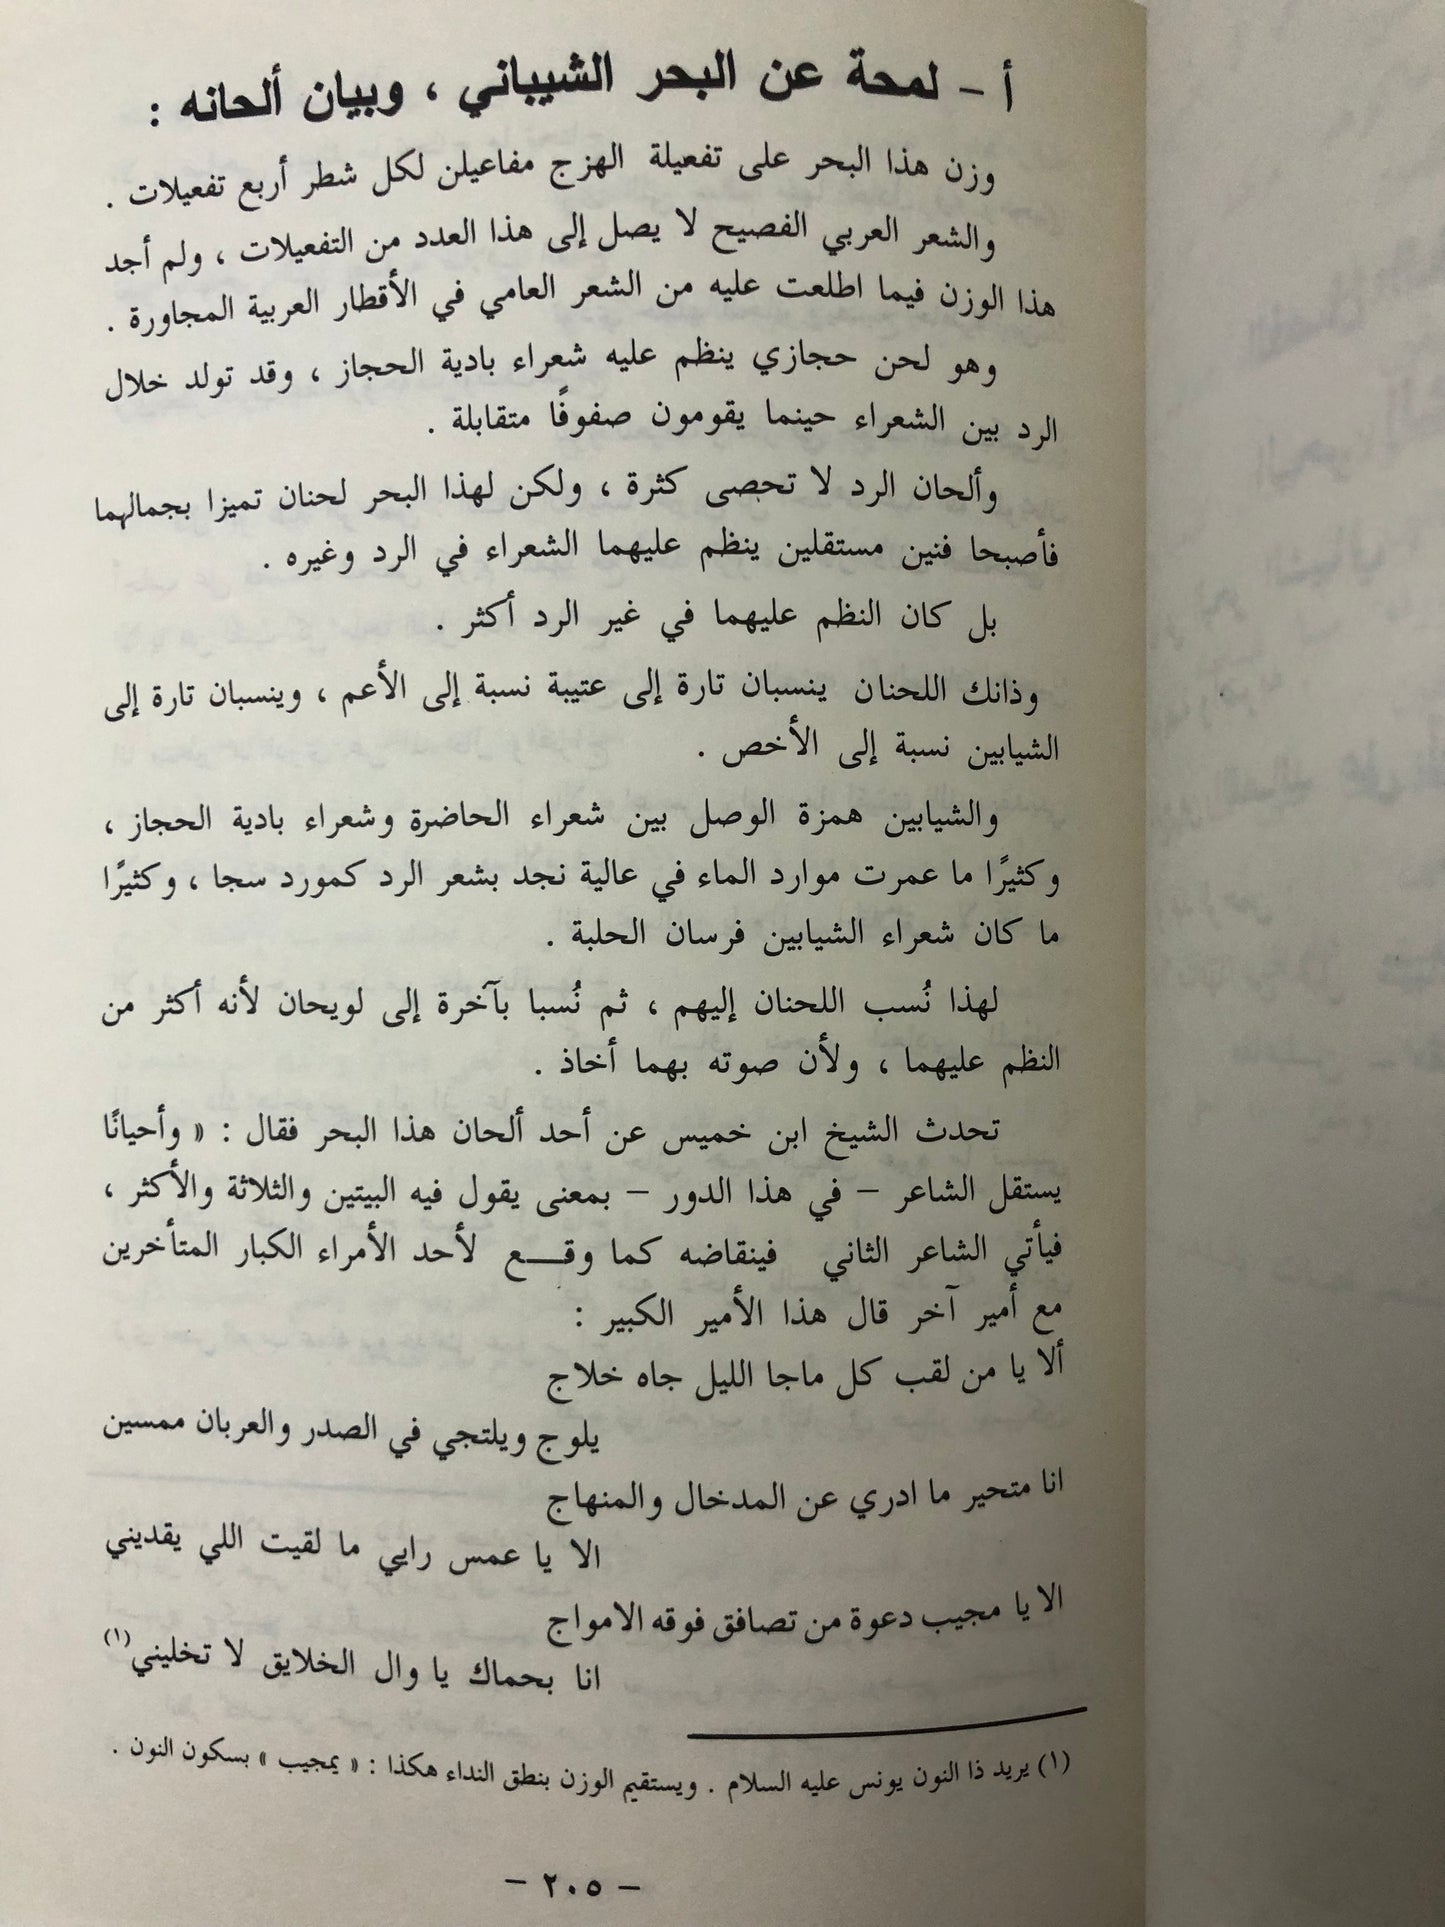 أ - لمحة عن البحر الشيباني ، وبيان ألحانه :
وزن هذا البحر على تفعيلة الهزج مفاعيلن لكل شطر أربع تفعيلات .
والشعر العربي الفصيح لا يصل إلى هذا العدد من التفعيلات ، ولم أجد
هذا الوزن فيما اطلعت عليه من الشعر العامي في الأقطار العربية المجاورة .
وهو لحن حجازي ينظم عليه شعراء بادية الحجاز ، وقد تولد خلال
الرد بين الشعراء حينما يقومون صفوفًا متقابلة .
وألحان الرد لا تحصى كثرة ، ولكن لهذا البحر لحنان تميزا بجمالهما
فأصبحا فنين مستقلين ينظم عليهما الشعراء في الرد وغيره .
بل كان النظم عليهما في غير الرد أكثر .
وذانك اللحنان ينسبان تارة إلى عتيبة نسبة إلى الأعم ، وينسبان تارة إلى
الشيابين نسبة إلى الأخص .
والشيابين همزة الوصل بين شعراء الحاضرة وشعراء بادية الحجاز ،
وكثيرًا ما عمرت موارد الماء في عالية نجد بشعر الرد كمورد سجا ، وكثيرًا
ما كان شعراء الشيابين فرسان الحلبة .
لهذا نُسب اللحنان إليهم ، ثم نُسبا بآخرة إلى لويحان لأنه أكثر من
النظم عليهما ، ولأن صوته بهما أخاذ .
تحدث الشيخ ابن خميس عن أحد ألحان هذا البحر فقال : « وأحيانًا
يستقل الشاعر – في هذا الدور – بمعنى يقول فيه البيتين والثلاثة والأكثر ،
فيأتي الشاعر الثاني فينقاضه كما وقــع لأحد الأمراء الكبار المتأخرين
مع أمير آخر قال هذا الأمير الكبير :
ألا يا من لقب كل ماجا الليل جاه خلاج
يلوج ويلتجي في الصدر والعربان ممسين
انا متحير ما ادري عن المدخال والمنهاج
الا يا عمس رايي ما لقيت اللي يقديني
الا يا مجيب دعوة من تصافق فوقه الامواج
انا بحماك يا وال الخلايق لا تخليني(١)
(١) يريد ذا النون يونس عليه السلام . ويستقيم الوزن بنطق النداء هكذا : « يمجيب » بسكون النون .
– ٢٠٥ –